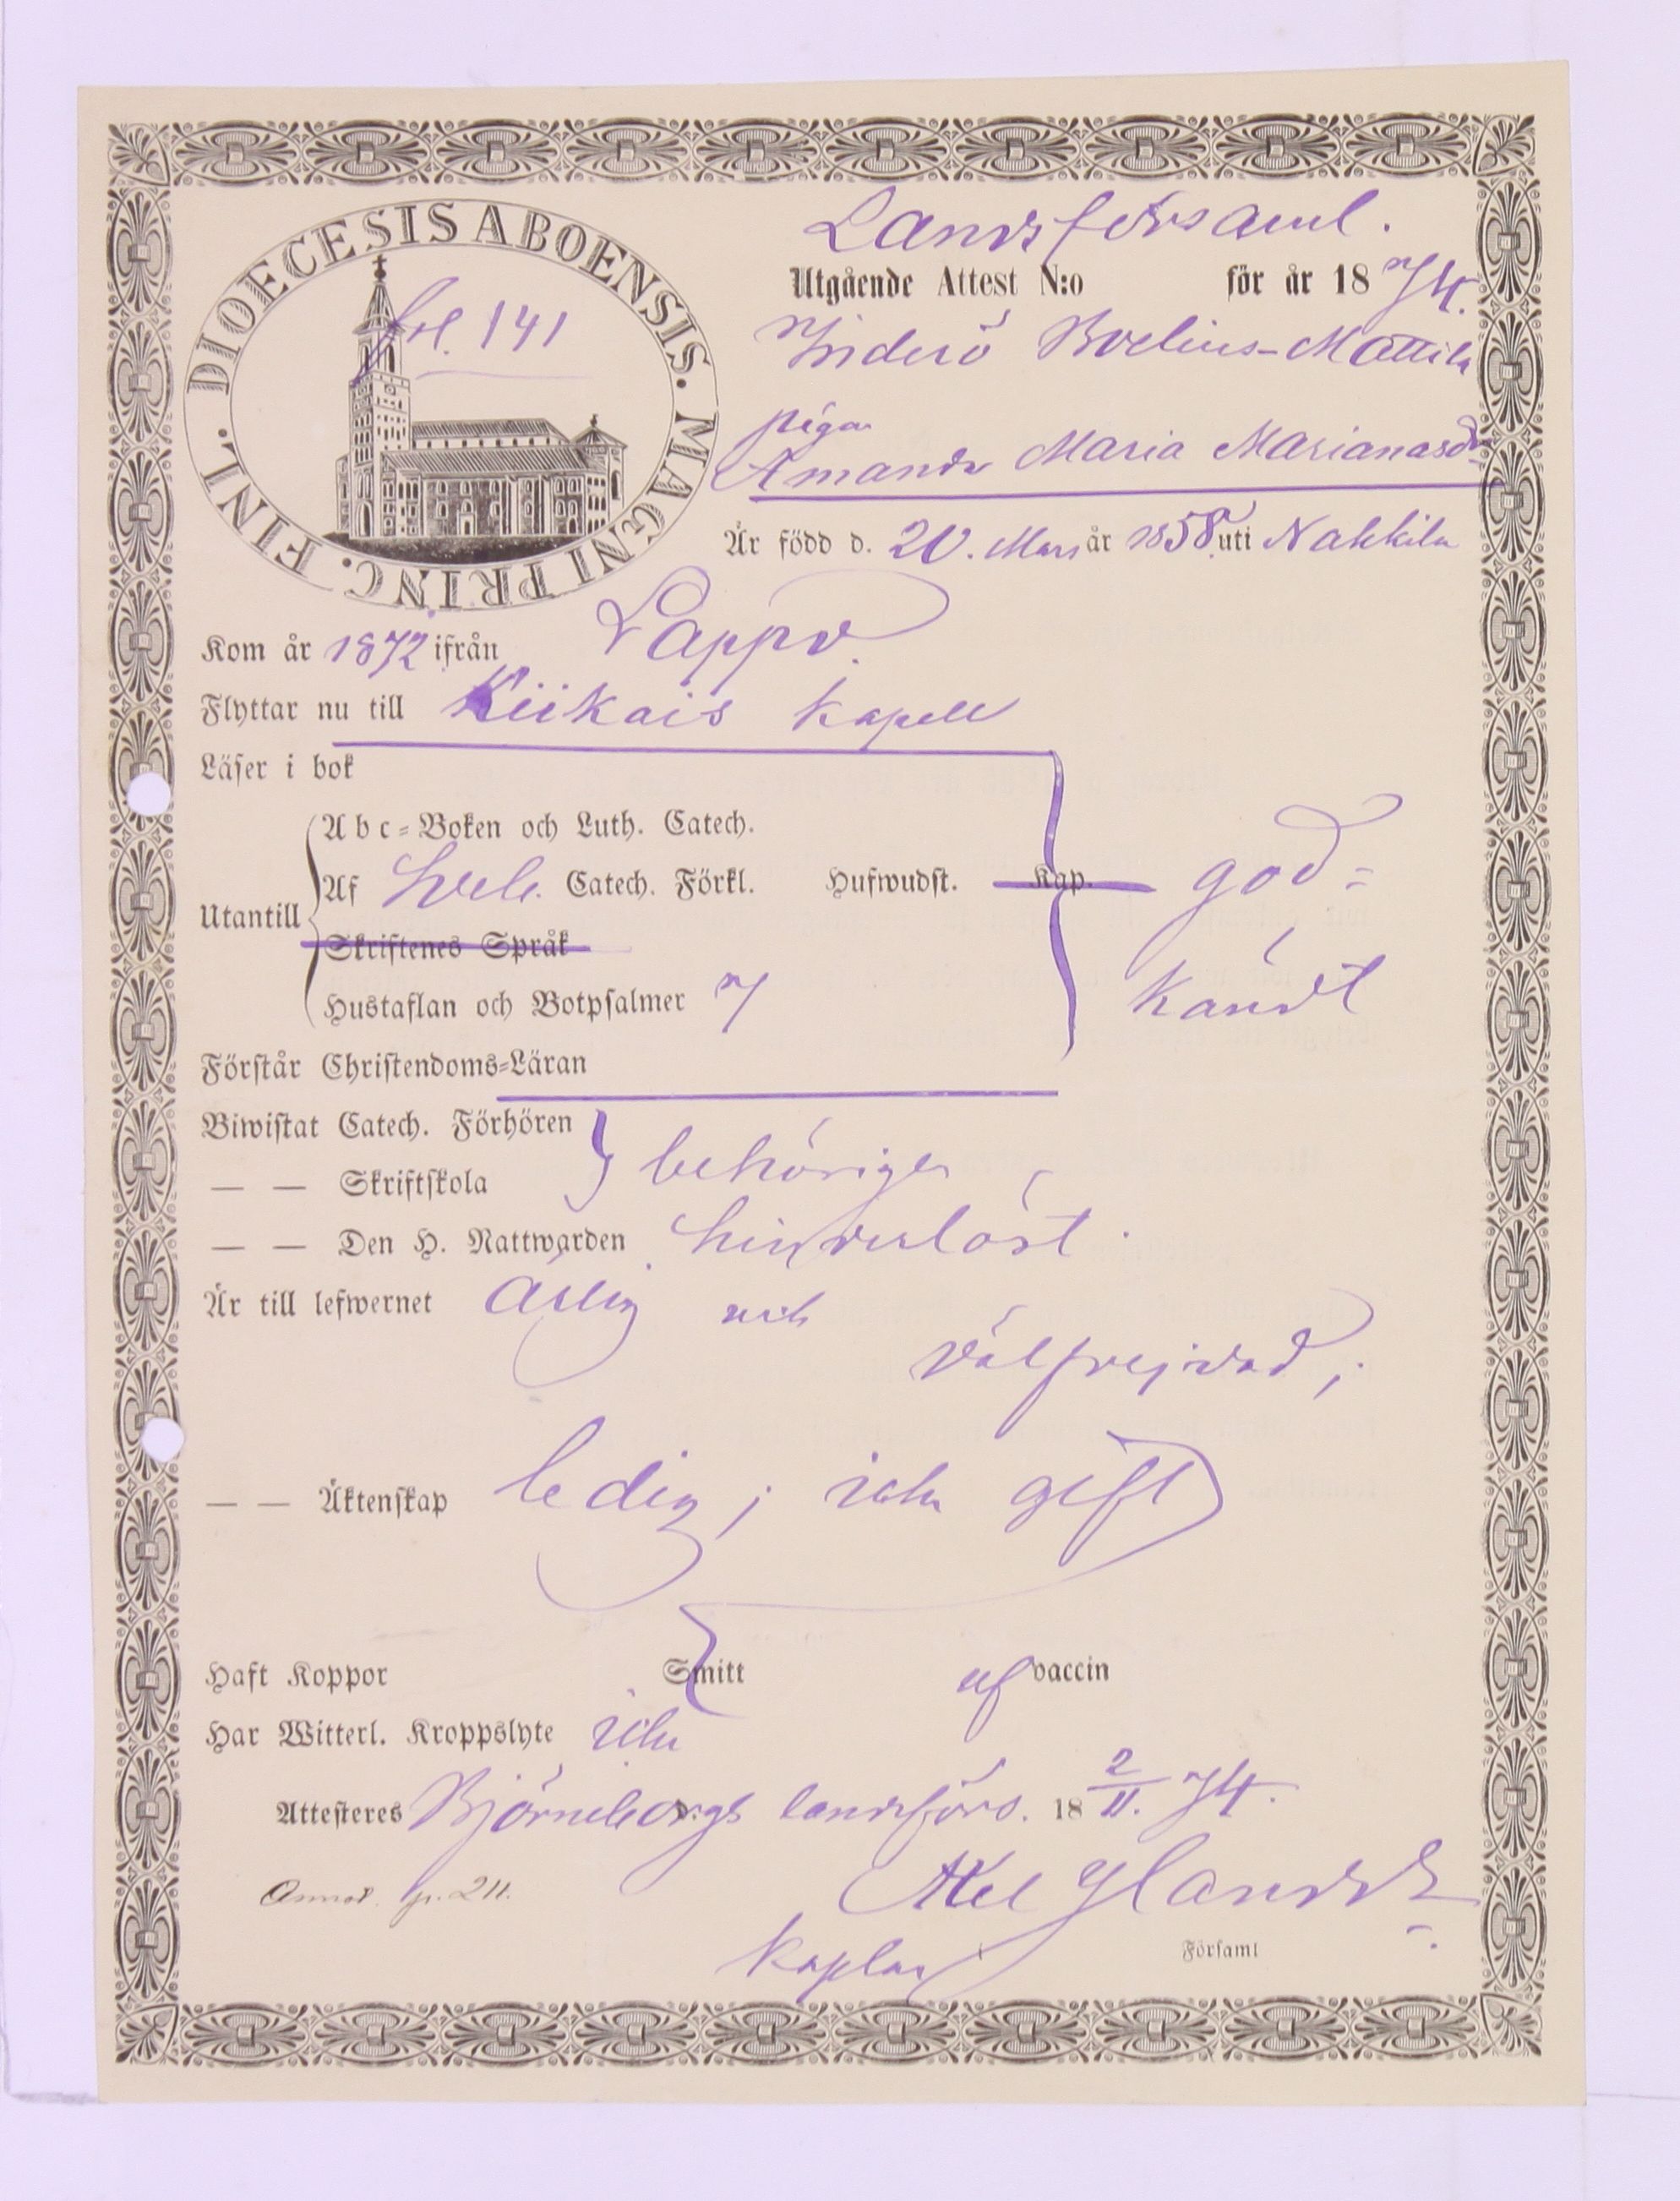 DIOECESIS ABOENSIS. MAGNI PRINC. FINL.
fol. 141
Landsförsaml.
Utgående Attest N:o för år 1874.
Inderö Boelius-Mattila
piga
Amanda Maria Marianasdr
Är född d. 20. Mars år 1858 uti Nakkila
Kom år 1872 ifrån Lappo.
Flyttar nu till Kiikais kapell
Läser i bok
Abc-Boken och Luth. Catech.
Af hela Catech. Förkl. Hufwudst. Kap.
god-
Utantill
Skriftenes Språk
Hustaflan och Botpsalmer 7
kändt
Förstår Christendoms-Läran
Biwistat Catech. Förhören
behörigen
— — Skriftskola
— — Den H. Nattwarden hinderlöst.
Är till lefwernet ärlig och
välfrejdad;
— — Äktenskap ledig; icke gift
Haft Koppor Smitt af vaccin
Har Witterl. Kroppslyte icke
Attesteres Björneborgs landsförs. 18 2/11. 74.
Annot. p. 211.
Axel
kaplan
Församl